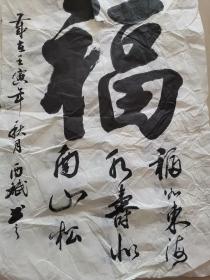 福
福如東海
水壽比
南山松
歲在壬寅年秋月